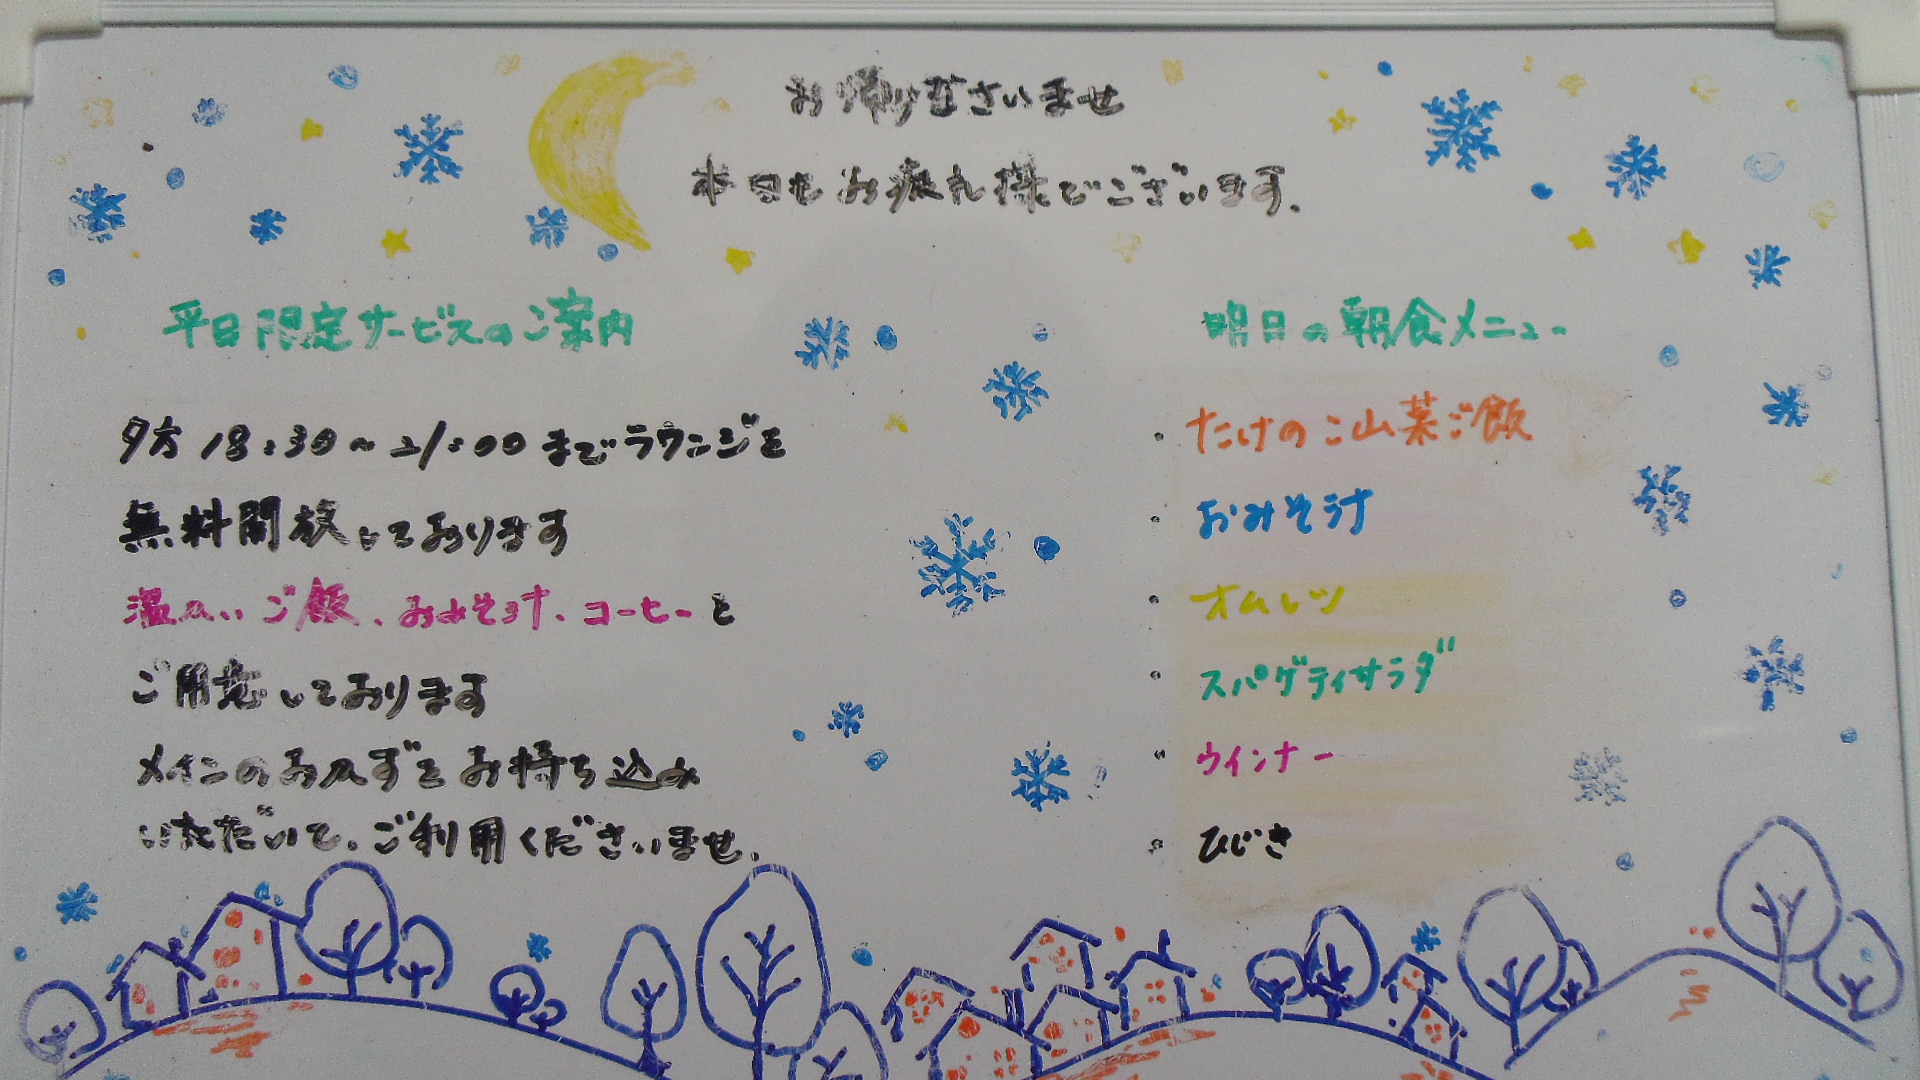 お帰りなさいませ
本日もお疲れ様でございます.
平日限定サービスのご案内
夕方 18:30〜21:00 までラウンジを
無料開放しております
温かいご飯、おみそ汁、コーヒーと
ご用意しております
メインのおかずをお持ち込み
いただいて、ご利用くださいませ.
明日の朝食メニュー
・たけのこ山菜ご飯
・おみそ汁
・オムレツ
・スパゲティサラダ
・ウインナー
・ひじき